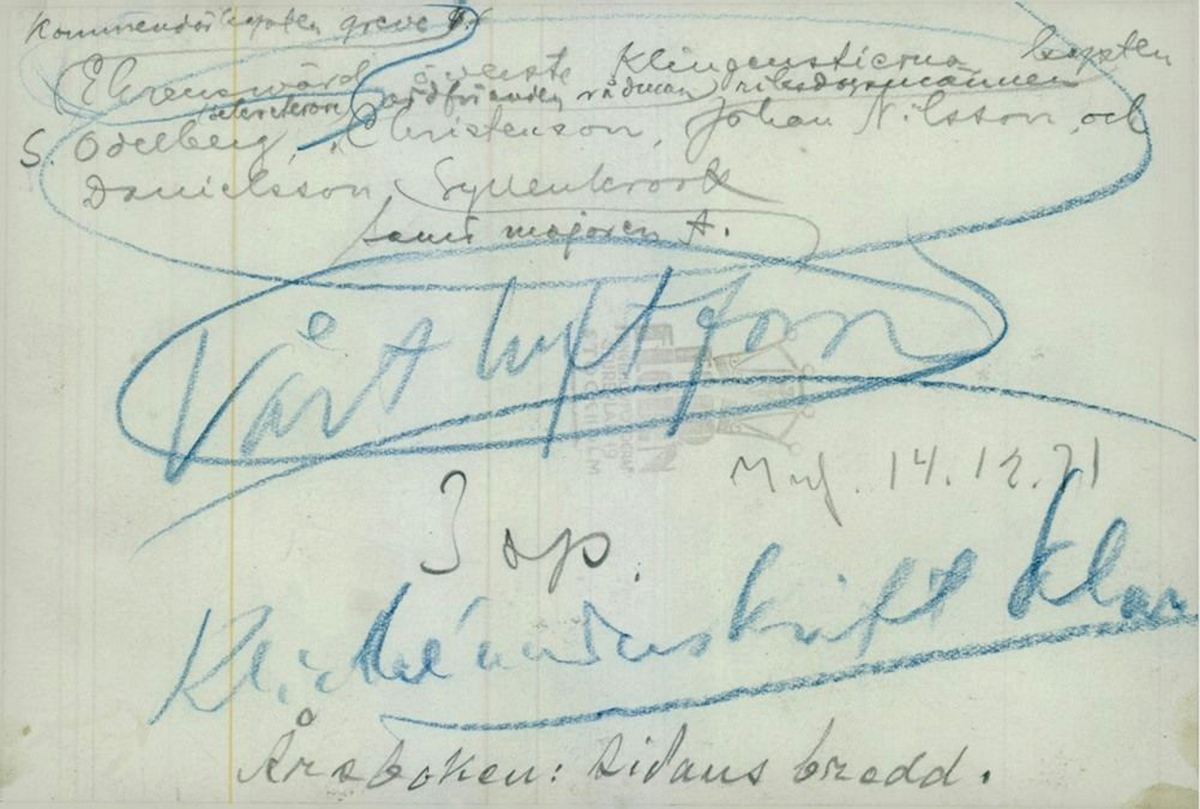 Kommendörkapten greve
Ehrensvärd, överste Klingenstierna, kapten
ordföranden rådman riksdagsmännen
S. Odelberg, Christenson, Johan Nilsson, och
Danielsson, Syllenkrook
samt majoren A.
Vårt luft
14.12.21
3 sp.
Kliché underskrift klar
Årsboken: sidans bredd.